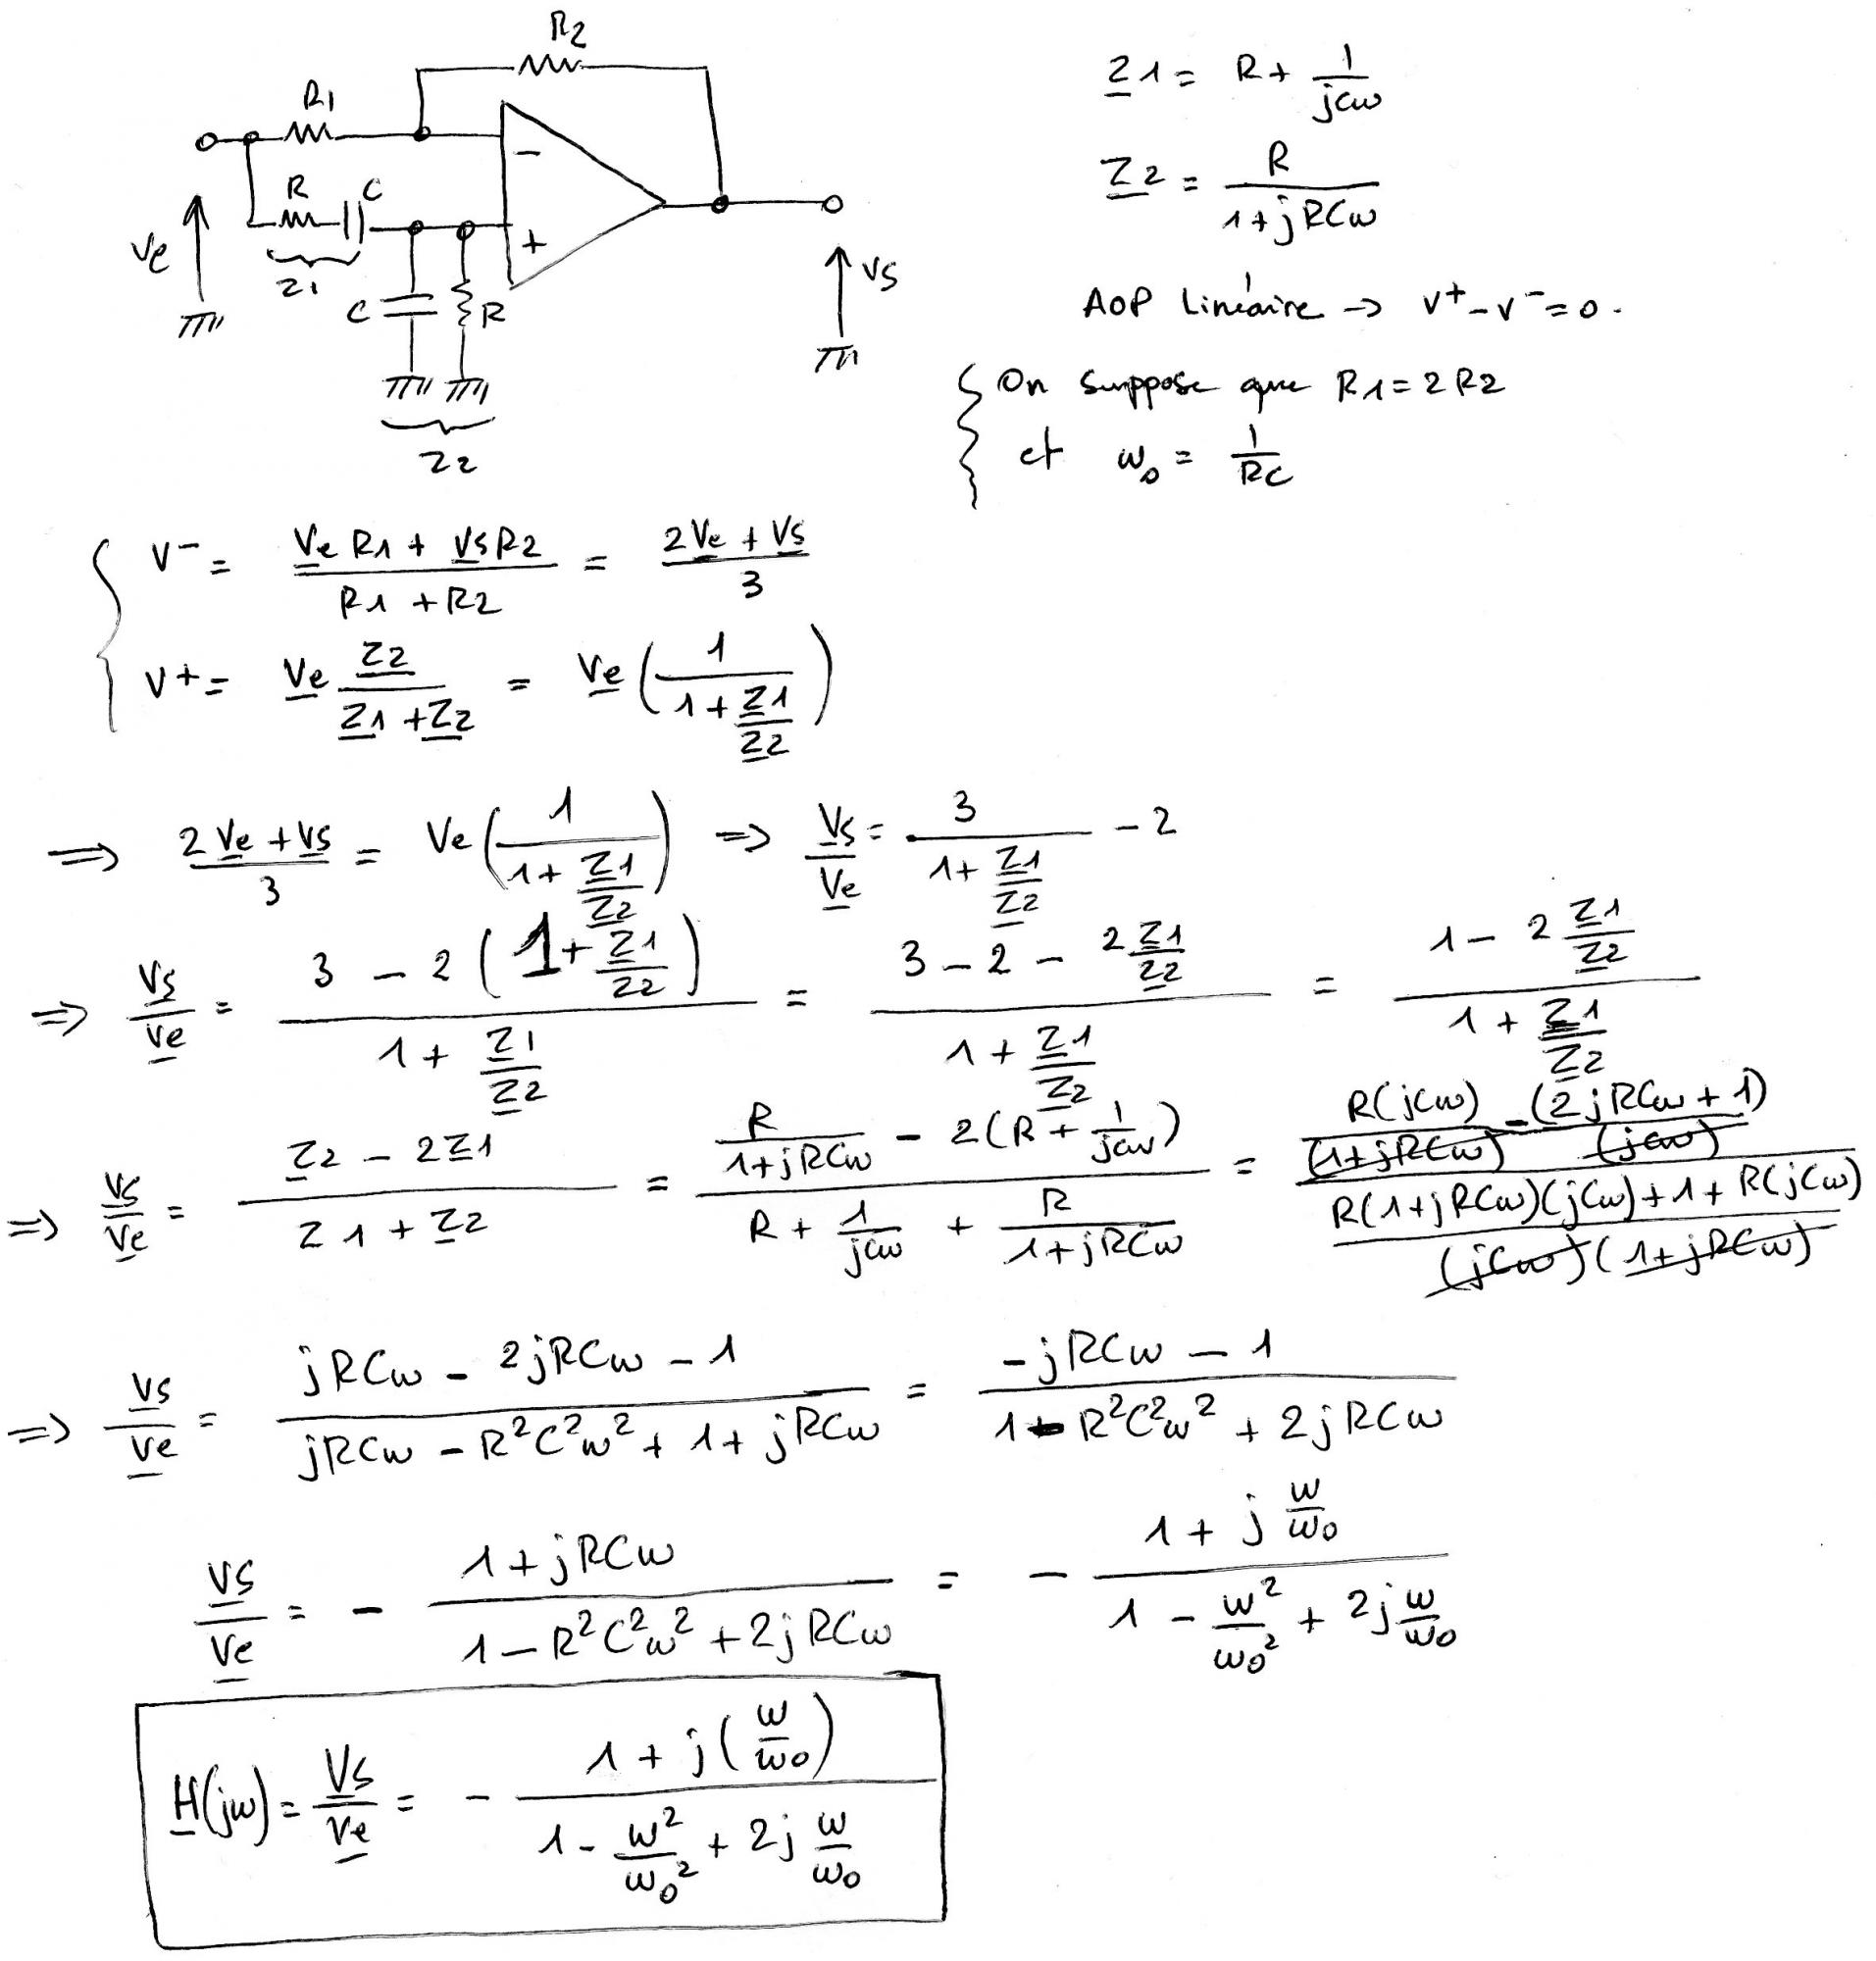 R2
R1
R C
Ve
Z1
C R
Z2
- +
Vs
Z1 = R + 1/(jCω)
Z2 = R/(1+jRCω)
AOP Linéaire -> V+ - V- = 0.
{ On suppose que R1 = 2 R2
et ω0 = 1/(RC)
V- = (Ve R1 + Vs R2)/(R1 + R2) = (2Ve + Vs)/3
V+ = Ve Z2/(Z1 + Z2) = Ve (1/(1 + Z1/Z2))
=> (2 Ve + Vs)/3 = Ve (1/(1 + Z1/Z2)) => Vs/Ve = 3/(1 + Z1/Z2) - 2
=> Vs/Ve = (3 - 2 (1 + Z1/Z2))/(1 + Z1/Z2) = (3 - 2 - 2 Z1/Z2)/(1 + Z1/Z2) = (1 - 2 Z1/Z2)/(1 + Z1/Z2)
=> Vs/Ve = (Z2 - 2Z1)/(Z1 + Z2) = (R/(1+jRCω) - 2(R + 1/(jCω)))/(R + 1/(jCω) + R/(1+jRCω)) = (R(jCω)/(1+jRCω) - (2jRCω + 1)/(jCω))/((R(1+jRCω)(jCω) + 1 + R(jCω))/((jCω)(1+jRCω)))
=> Vs/Ve = (jRCω - 2jRCω - 1)/(jRCω - R²C²ω² + 1 + jRCω) = (-jRCω - 1)/(1 - R²C²ω² + 2jRCω)
Vs/Ve = - (1 + jRCω)/(1 - R²C²ω² + 2jRCω) = - (1 + j ω/ω0)/(1 - ω²/ω0² + 2j ω/ω0)
H(jω) = Vs/Ve = - (1 + j(ω/ω0))/(1 - ω²/ω0² + 2j ω/ω0)